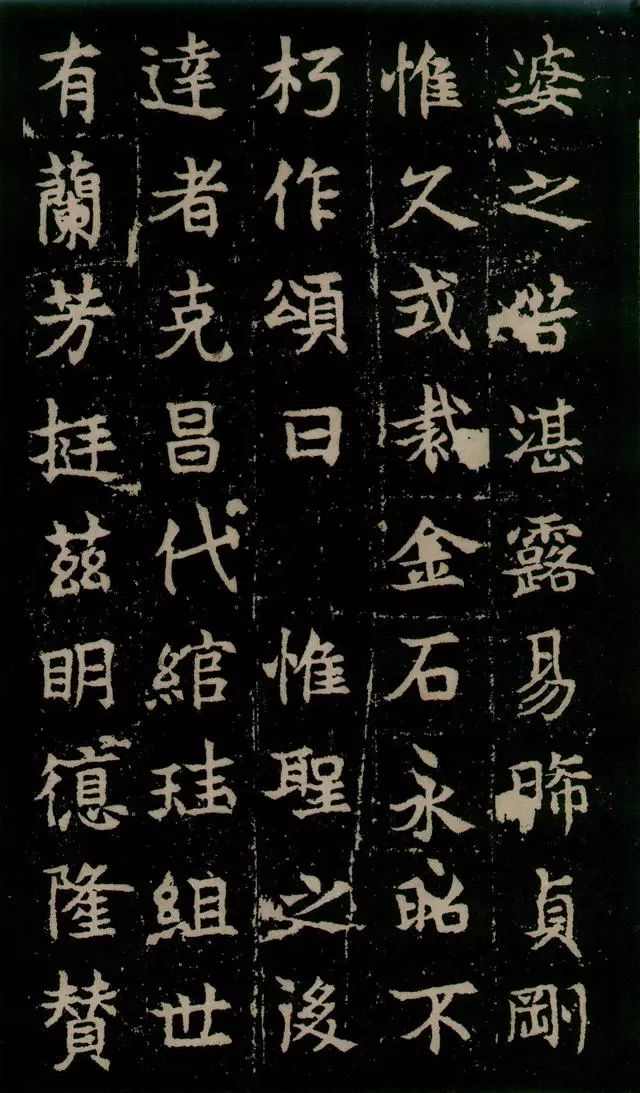 婆之湛露易晞貞剛
惟久式裁金石永昭不
朽作頌曰 惟聖之後
達者克昌代綰珪組世
有蘭芳挺茲明德隆贊